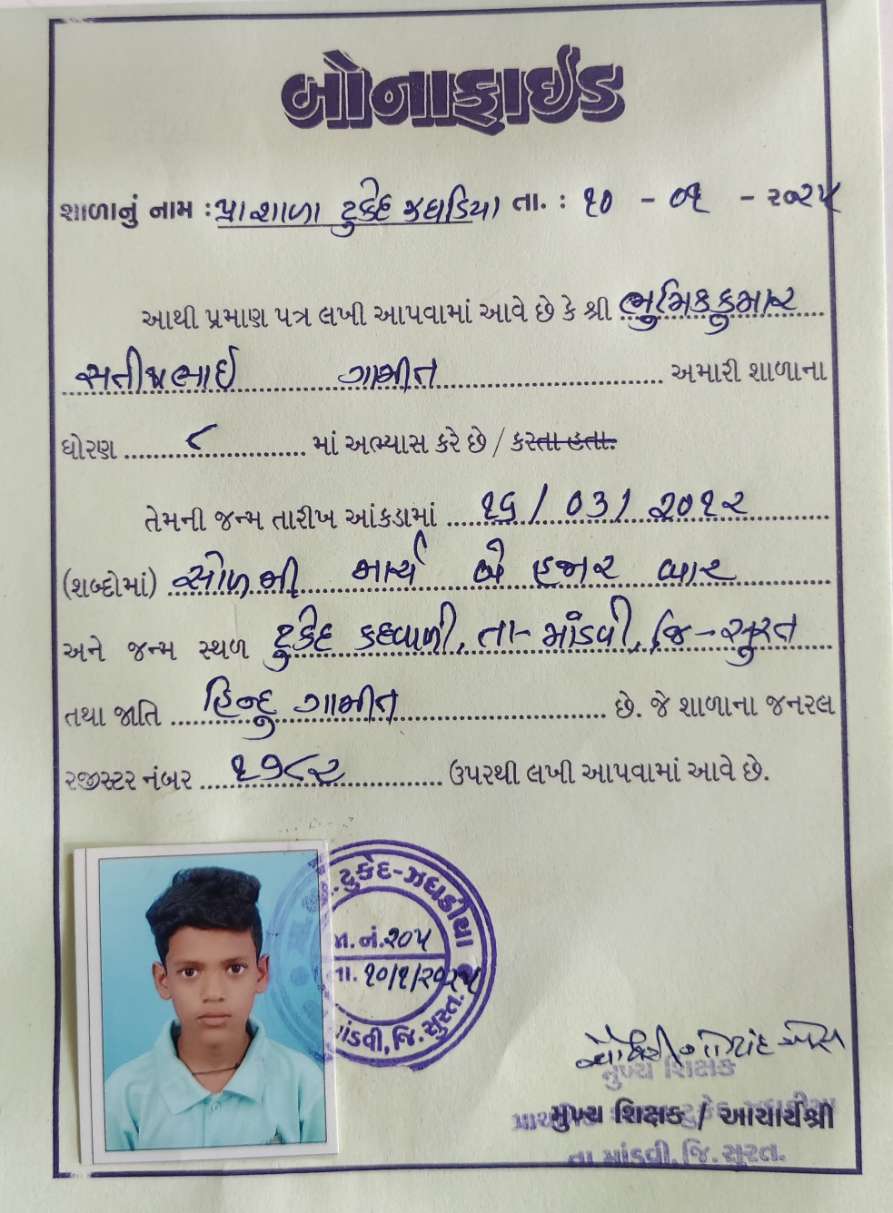 બોનાફાઈડ
શાળાનું નામ : પ્રા શાળા ટુકેદ ઝઘડિયા તા. : ૧૦ - ૦૧ - ૨૦૨૫
આથી પ્રમાણ પત્ર લખી આપવામાં આવે છે કે શ્રી ભુમિકકુમાર
સતીષભાઈ ગામીત અમારી શાળાના
ધોરણ ૮ માં અભ્યાસ કરે છે / કરતા હતા.
તેમની જન્મ તારીખ આંકડામાં ૧૬ / ૦૩ / ૨૦૧૨
(શબ્દોમાં) સોળમી માર્ચ બે હજાર બાર
અને જન્મ સ્થળ ટુકેદ કદવાળી, તા- માંડવી, જિ - સુરત
તથા જાતિ હિન્દુ ગામીત છે. જે શાળાના જનરલ
રજીસ્ટર નંબર ૧૭૮૨ ઉપરથી લખી આપવામાં આવે છે.
ટુકેદ-ઝઘડીયા
જા.નં.૨૦૫
તા. ૧૦/૧/૨૦૨૫
માંડવી, જિ. સુરત.
મુખ્ય શિક્ષક
મુખ્ય શિક્ષક / આચાર્યશ્રી
તા.માંડવી, જિ. સુરત.